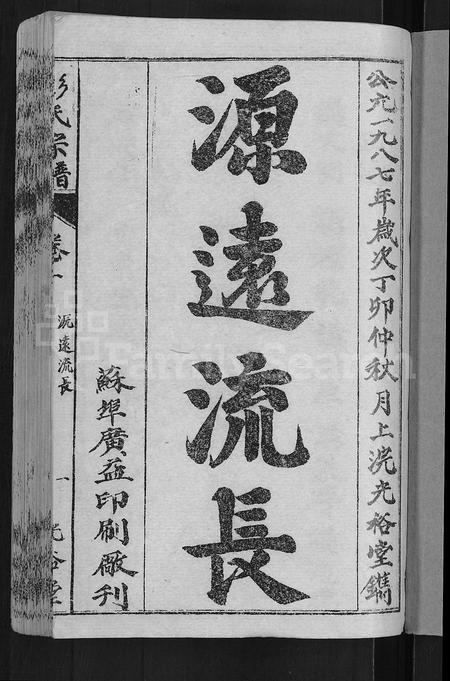 公元一九八七年歲次丁卯仲秋月上浣光裕堂鐫
源遠流長
蘇埠廣益印刷厰刋
氏宗譜
卷一
源遠流長
一
光裕堂
FamilySearch